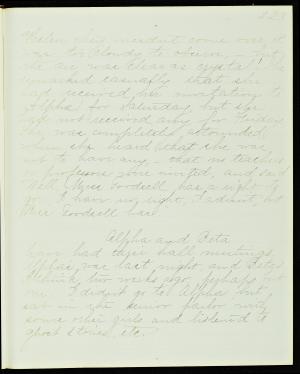 Helen said wouldn't come over, it
was too cloudy to observe, - but
the air was clear as crystal! She
remarked casually that she
had received her invitation to
Alpha for Saturday, but she
had not received any for Friday.
She was completely astounded,
when she heard that she was
not to have any - that no teachers
or professors were invited, and said
"Well, Miss Goodsell has a right to
go. I have no right, I admit, but
Miss Goodsell has."
Alpha and Beta
have had their hall meetings,
Alpha's was last night and Beta's
I think, two weeks ago, perhaps not
me. I didn't go to Alpha but,
sat in the senior parlor with
some other girls and listened to
ghost stories, etc.